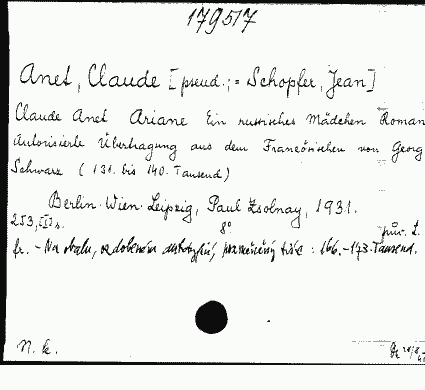 179517
Anet, Claude [pseud.; = Schopfer, Jean]
Claude Anet Ariane Ein russisches Mädchen Roman
Autorisierte Übertragung aus dem Französischen von Georg
Schwarz (131. bis 140. Tausend)
Berlin-Wien-Leipzig, Paul Zsolnay, 1931.
253, III s. 8° pův. t.
fr. - Na obalu, ozdobeném autotypií, poznačený tisk: 166.-173. Tausend.
N. k.